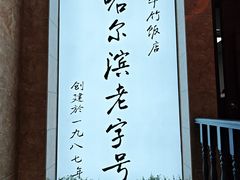 竹饭店
哈尔滨老字号
创建於一九八七年